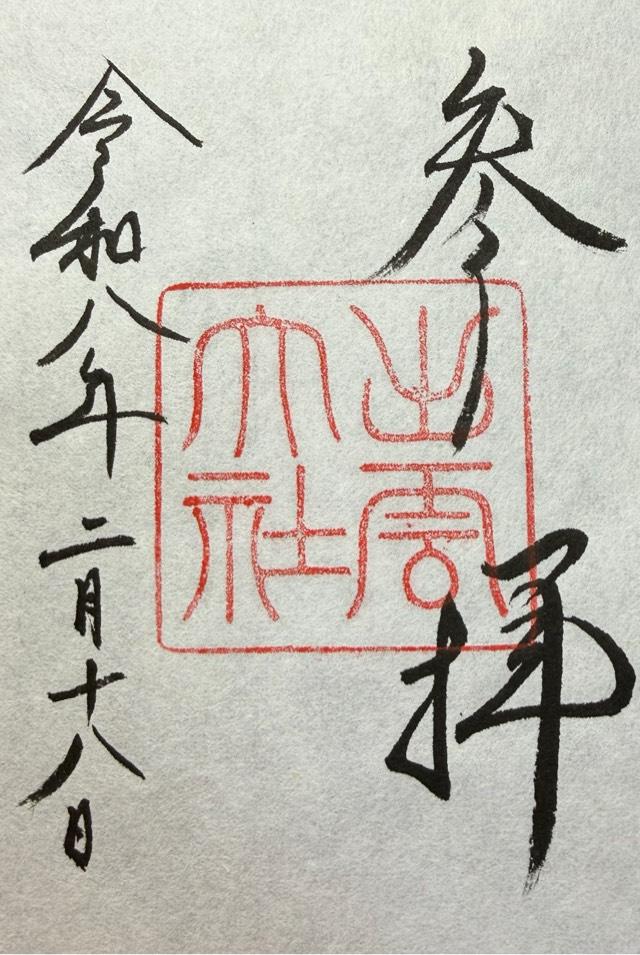 参拝
出雲
大社
令和八年二月十八日